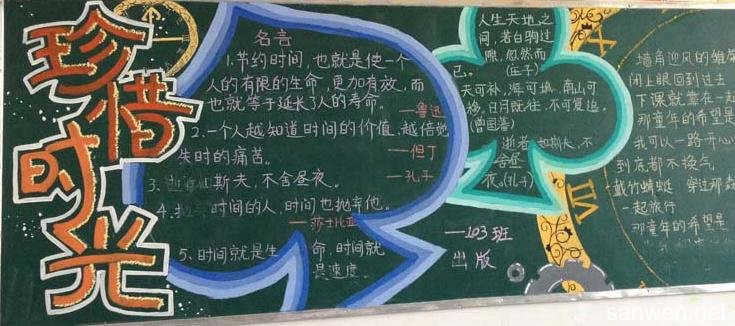 珍惜时光
名言
1.节约时间,也就是使一个
人的有限的生命,更加有效,而
也就等于延长了人的寿命。
——鲁迅
2.一个人越知道时间的价值,越倍觉
失时的痛苦。
——但丁
3.斯夫,不舍昼夜。
——孔子
4.时间的人,时间也抛弃他。
——莎士比亚
5、时间就是生命,时间就
是速度。
人生天地之
间,若白驹过
隙,忽然而
已。(庄子)
天可补,海可填,南山可
移,日月既往,不可复追。
(曾国藩)
逝者如斯夫,不
舍昼
夜。(孔子)
——103班
出版
X
VII
墙角迎风的雏菊
闭上眼回到过去
下课就靠在一起
那童年的希望是
我可以一路开心
到底都不换气
戴竹蜻蜓 穿过那森
一起旅行
那童年的希望是
sanwen.net